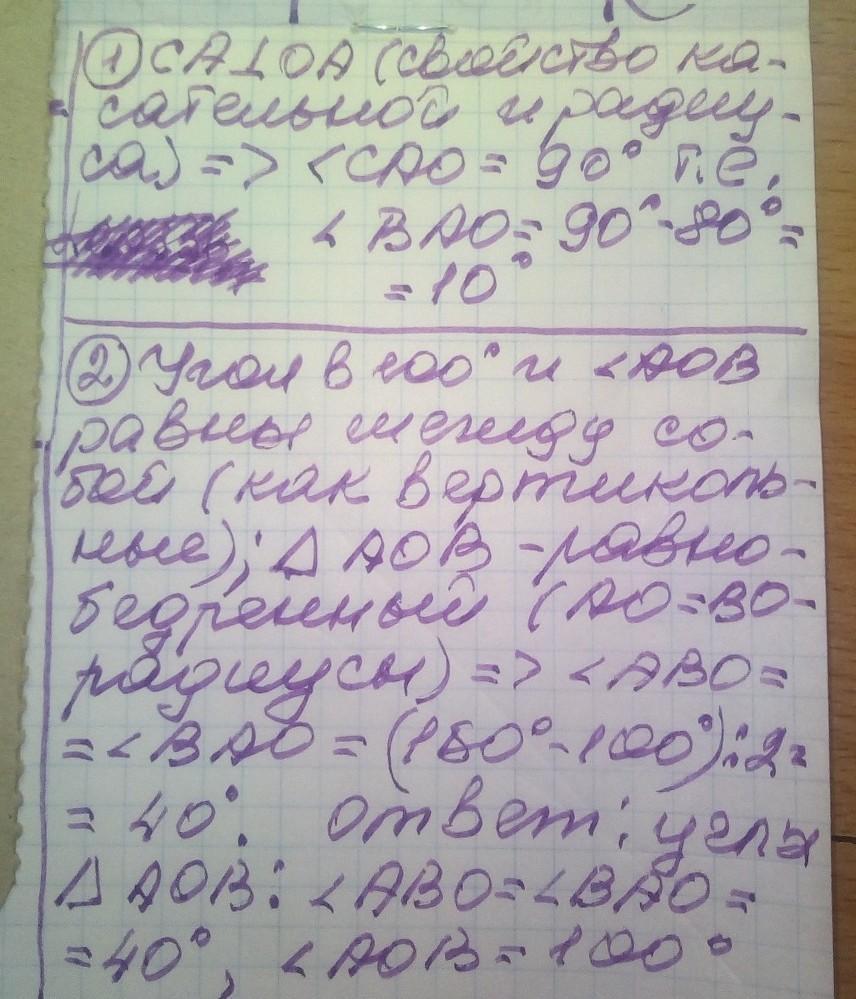 ① CA⊥OA (свойство ка-
сательной и радиу-
са) => <CAO = 90° т.е.
<BAO = 90°-80° =
= 10°
② Угол в 100° и <AOB
равны между со-
бой (как вертикаль-
ные); Δ AOB - равно-
бедренный (AO=BO-
радиусы) => <ABO =
= <BAO = (180°-100°):2=
= 40°. Ответ: углы
Δ AOB: <ABO=<BAO=
=40°, <AOB = 100°